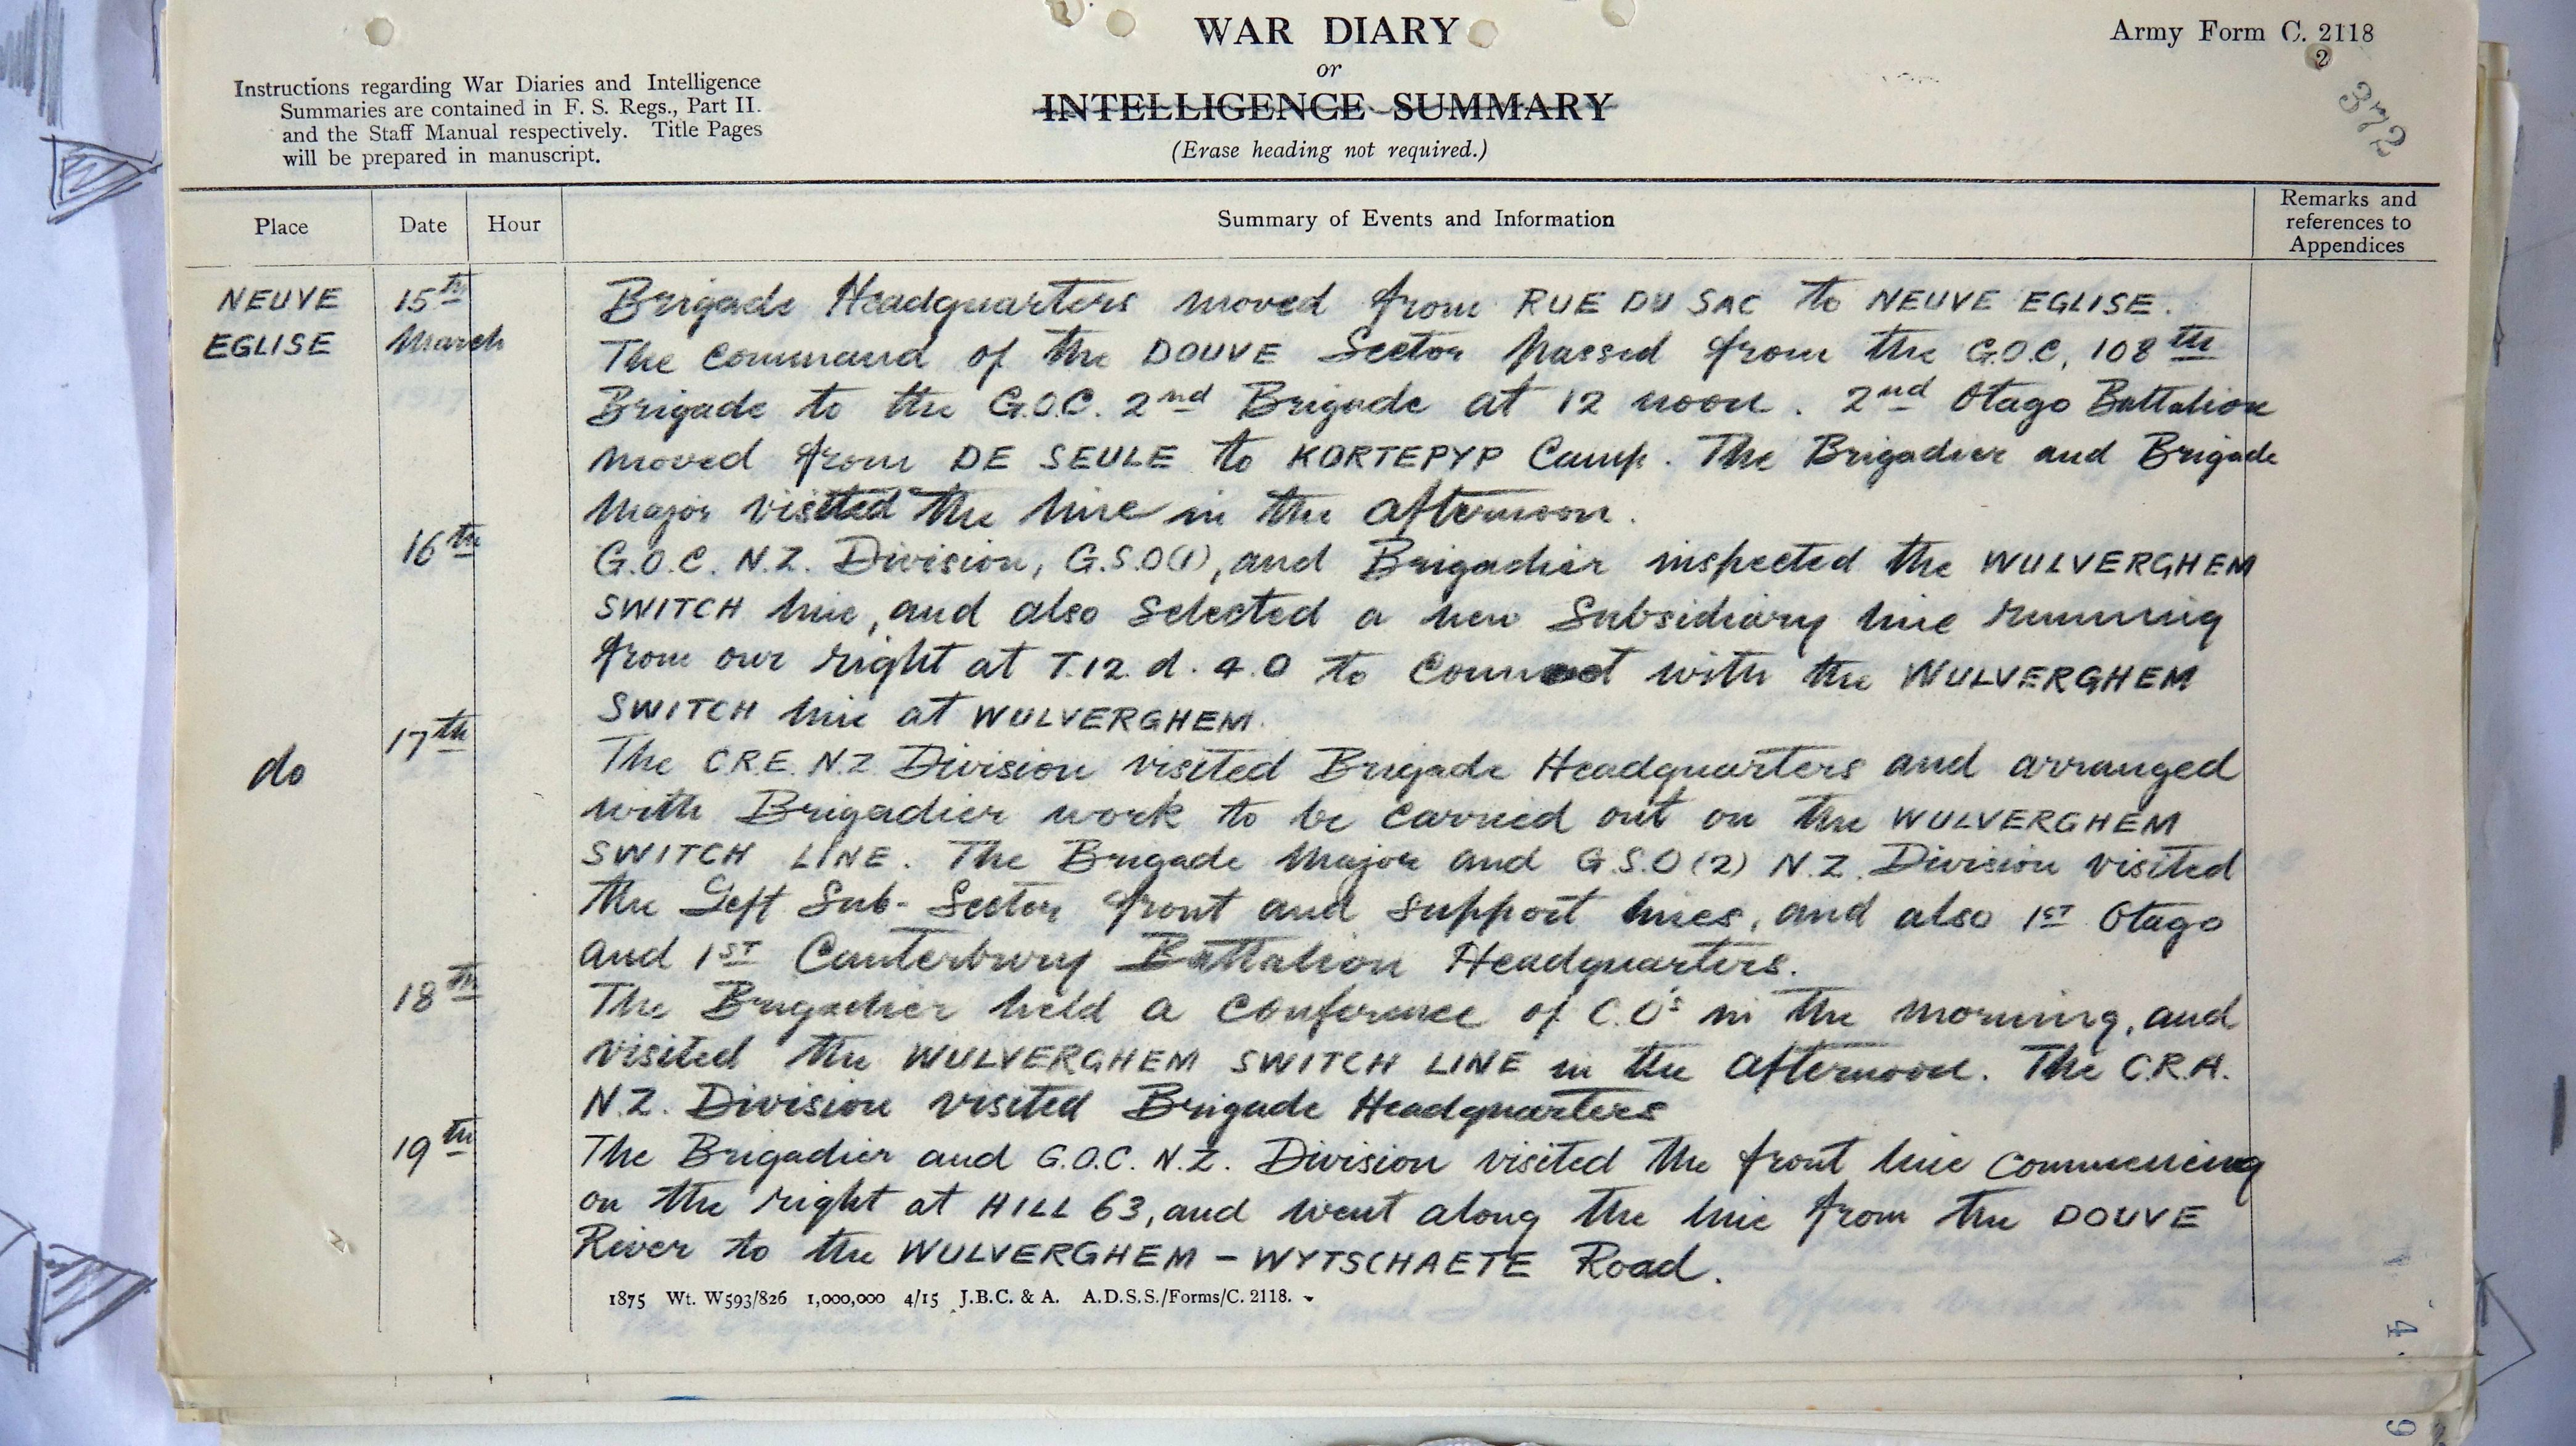 WAR DIARY
or
INTELLIGENCE SUMMARY
(Erase heading not required.)
Army Form C. 2118
2
372
Instructions regarding War Diaries and Intelligence
Summaries are contained in F. S. Regs., Part II.
and the Staff Manual respectively. Title Pages
will be prepared in manuscript.
Place Date Hour Summary of Events and Information Remarks and references to Appendices
NEUVE 15th Brigade Headquarters moved from RUE DU SAC to NEUVE EGLISE.
EGLISE March The Command of the DOUVE Sector passed from the G.O.C, 108th
Brigade to the G.O.C. 2nd Brigade at 12 noon. 2nd Otago Battalion
moved from DE SEULE to KORTEPYP Camp. The Brigadier and Brigade
Major visited the line in the afternoon.
16th G.O.C. N.Z. Division, G.S.O(1), and Brigadier inspected the WULVERGHEM
SWITCH line, and also selected a new Subsidiary line running
from our right at T.12.d.4.0 to connect with the WULVERGHEM
SWITCH line at WULVERGHEM.
do 17th The C.R.E. N.Z Division visited Brigade Headquarters and arranged
with Brigadier work to be carried out on the WULVERGHEM
SWITCH LINE. The Brigade Major and G.S.O(2) N.Z. Division visited
the Left Sub-Sector front and support lines, and also 1ST Otago
and 1ST Canterbury Battalion Headquarters.
18th The Brigadier held a conference of C.O's in the morning, and
visited the WULVERGHEM SWITCH LINE in the afternoon. The C.R.A.
N.Z. Division visited Brigade Headquarters
19th The Brigadier and G.O.C. N.Z. Division visited the front line commencing
on the right at HILL 63, and went along the line from the DOUVE
River to the WULVERGHEM - WYTSCHAETE Road.
1875 Wt. W593/826 1,000,000 4/15 J.B.C. & A. A.D.S.S./Forms/C. 2118.
4
9